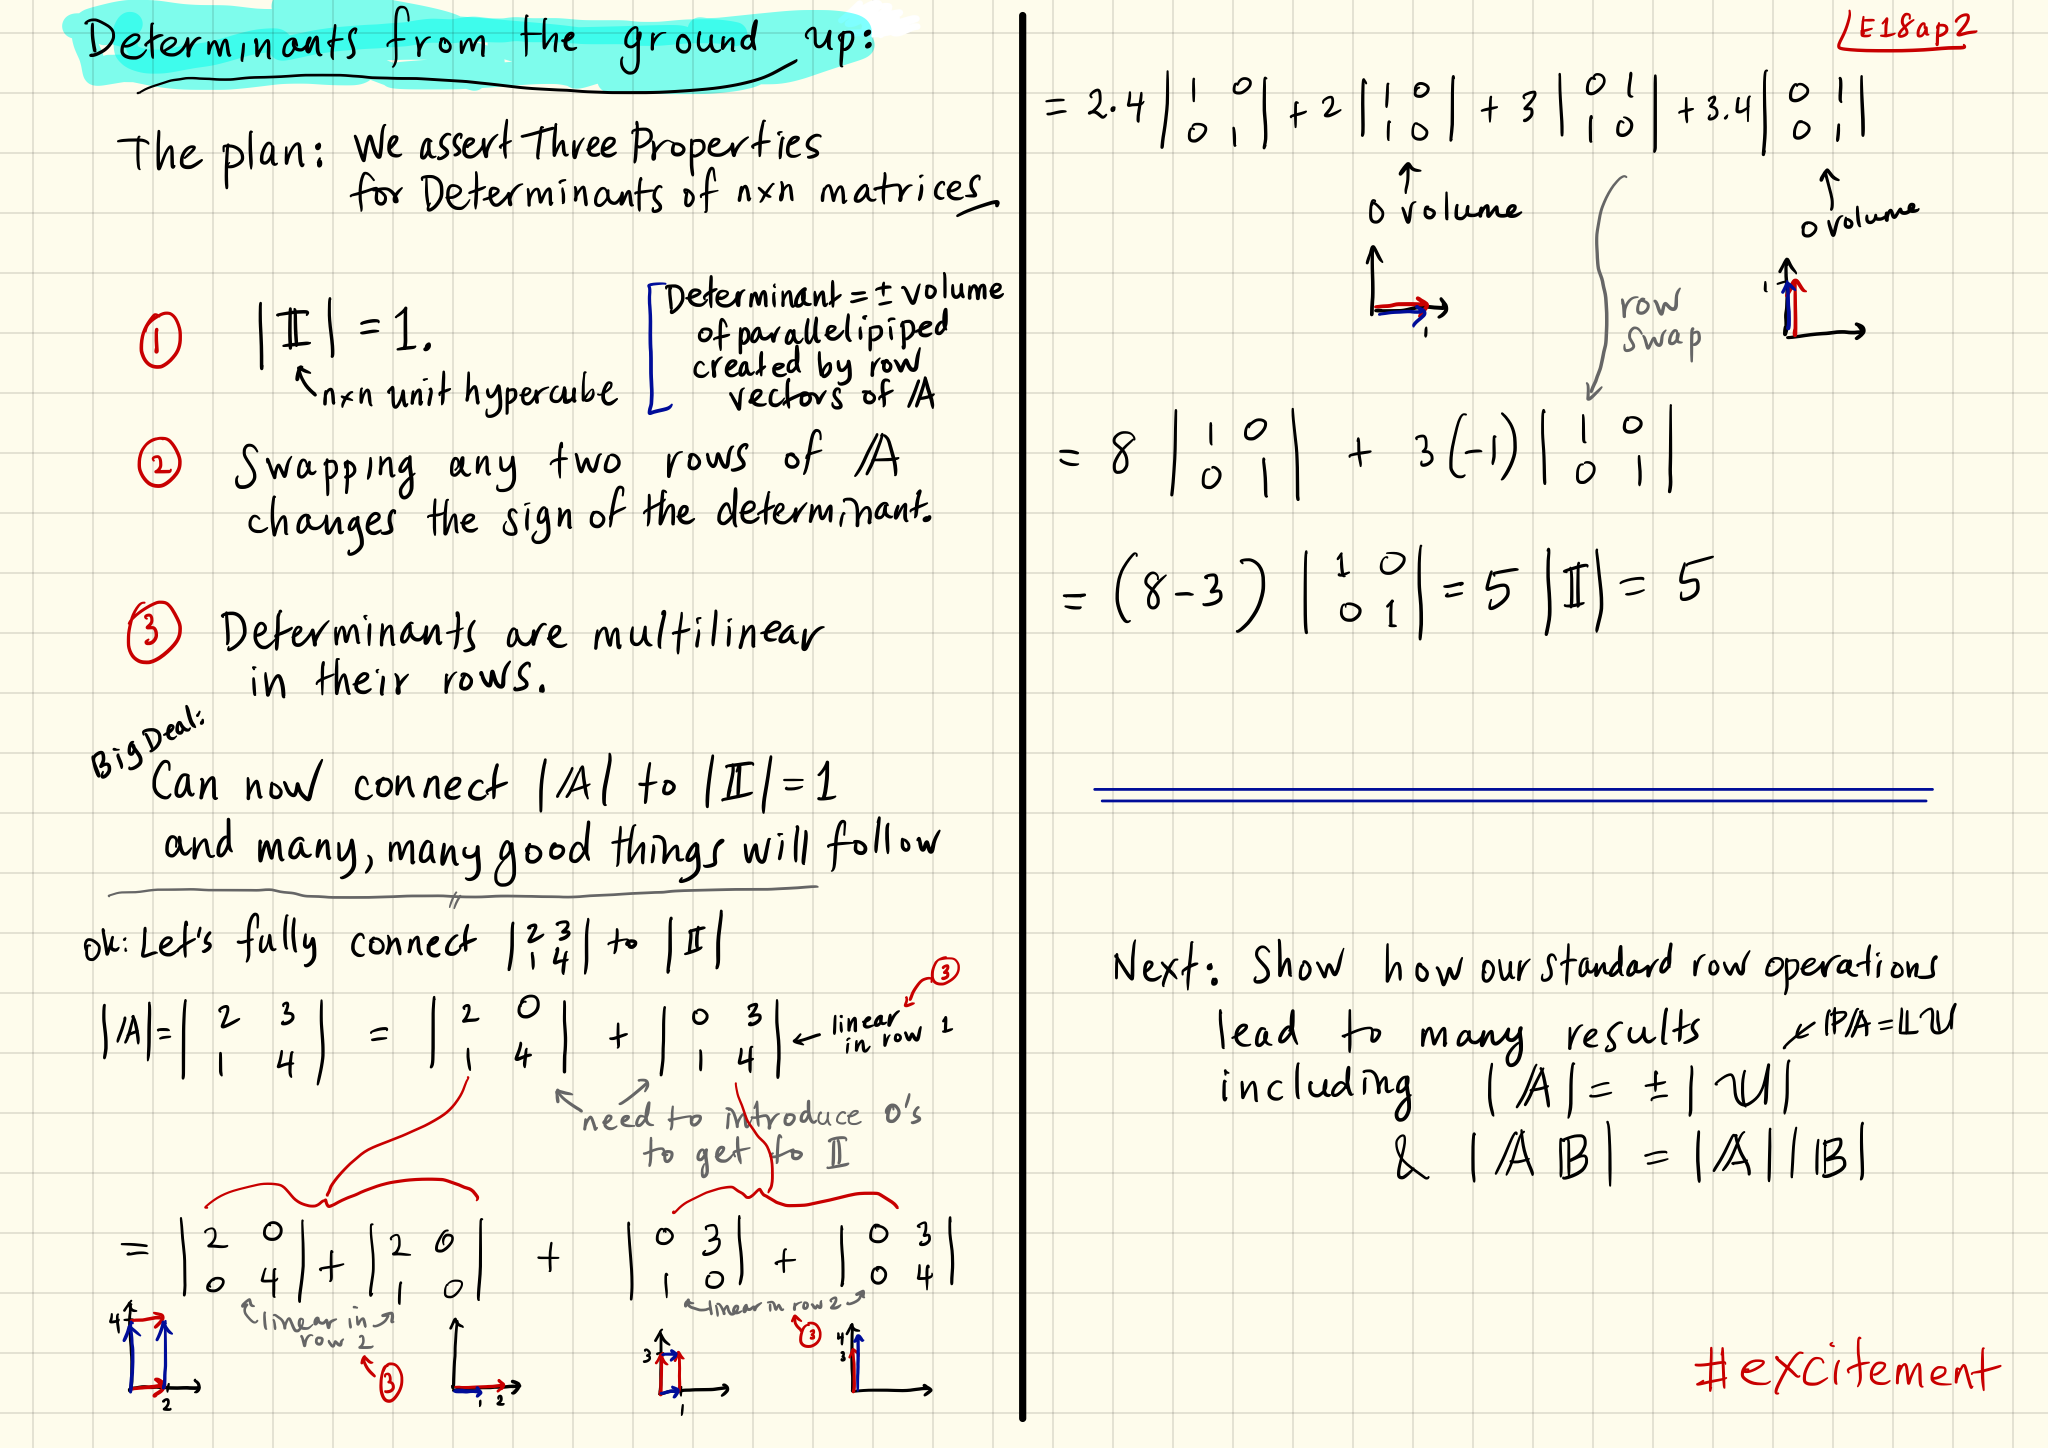 Determinants from the ground up:
The plan: We assert Three Properties
for Determinants of n×n matrices
① |𝕀| = 1.
n×n unit hypercube
Determinant = ± volume
of parallelipiped
created by row
vectors of 𝔸
② Swapping any two rows of 𝔸
changes the sign of the determinant.
③ Determinants are multilinear
in their rows.
Big Deal:
Can now connect |𝔸| to |𝕀| = 1
and many, many good things will follow
ok: Let's fully connect |2 3; 1 4| to |𝕀|
|𝔸| = |2 3; 1 4| = |2 0; 1 4| + |0 3; 1 4| ← linear in row 1 ③
need to introduce 0's
to get to 𝕀
= |2 0; 0 4| + |2 0; 1 0| + |0 3; 1 0| + |0 3; 0 4|
linear in
row 2
③
linear in row 2
③
4 2
1 2
3 1
4 3
LE18ap2
= 2·4 |1 0; 0 1| + 2 |1 0; 1 0| + 3 |0 1; 1 0| + 3·4 |0 1; 0 1|
0 volume
0 volume
1
1
row
swap
= 8 |1 0; 0 1| + 3(-1) |1 0; 0 1|
= (8-3) |1 0; 0 1| = 5 |𝕀| = 5
Next: Show how our standard row operations
lead to many results
ℙ𝔸 = 𝕃𝕌
including |𝔸| = ± |𝕌|
& |𝔸 𝔹| = |𝔸| |𝔹|
#excitement